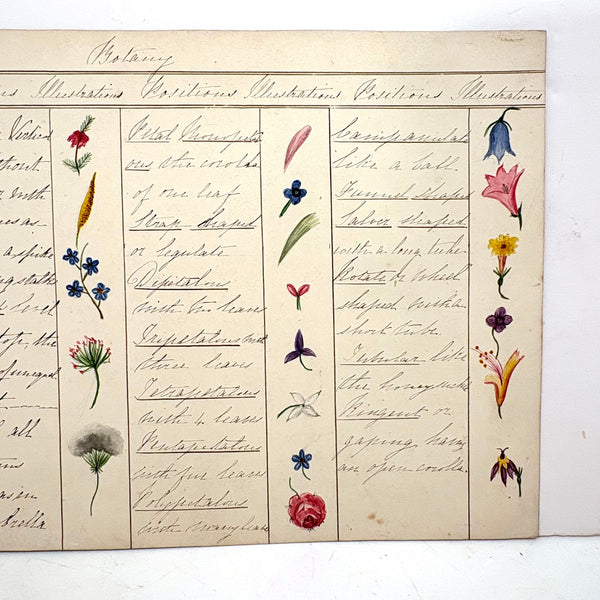 Botany
ns Illustrations Positions Illustrations Positions Illustrations
thout
r with
es as
a spike
g stalk
level
top, the
all
as in
brella
Petal Monopetal
ous the corolla
of one leaf
Strap-shaped
or legulate
Dipetalous
with two leaves
Tripetalous with
three leaves
Tetrapetalous
with 4 leaves
Pentapetalous
with five leaves
Polypetalous
with many leaves
Campanulate
like a bell.
Funnel shaped
Salver shaped
with a long tube
Rotate or wheel
shaped with a
short tube.
Tubular like
the honeysuckle
Ringent or
gaping having
an open corolla.